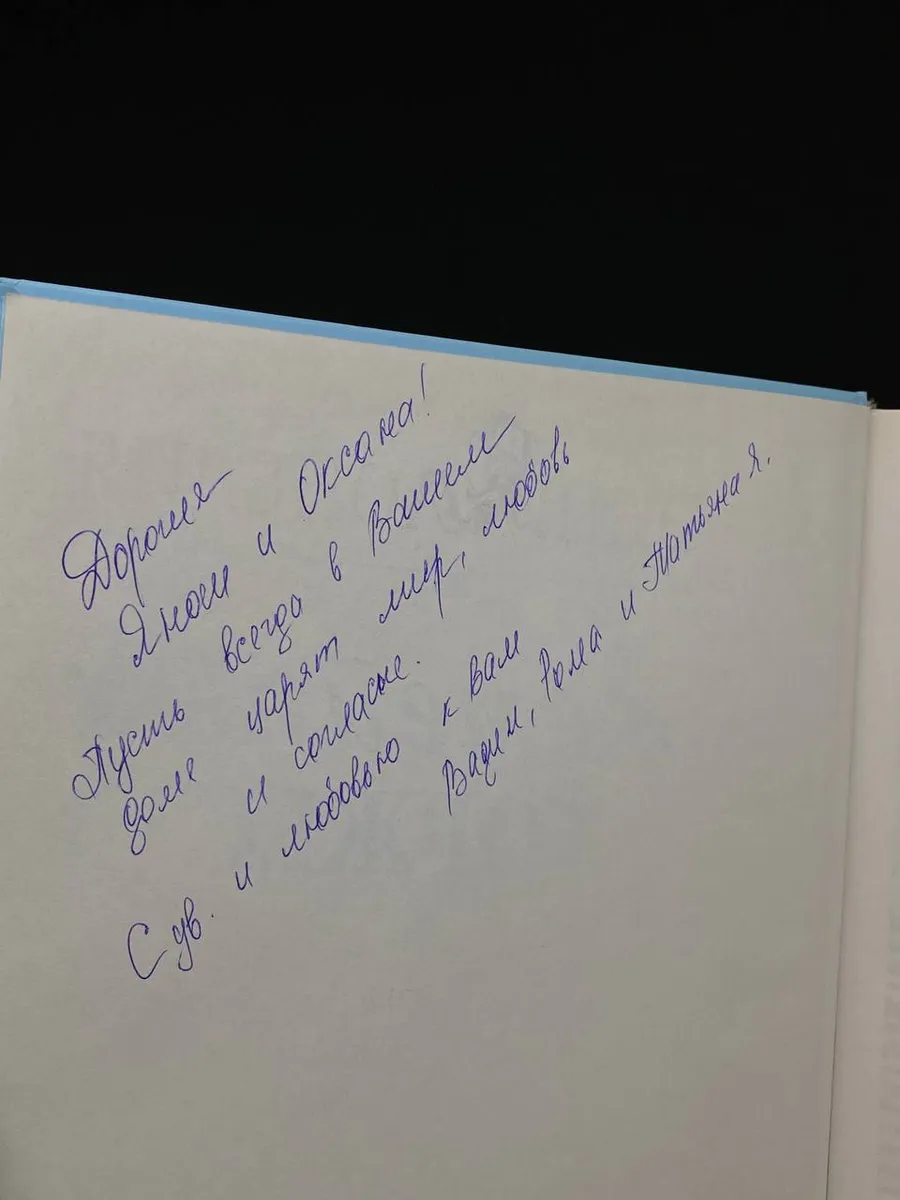 Дорогие
Янош и Оксана!
Пусть всегда в Вашем
доме царят мир, любовь
и согласие.
С ув. и любовью к вам
Вадим, Рома и Татьяна Я.